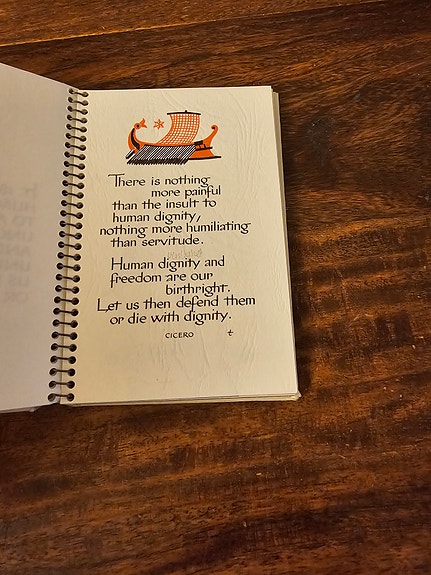 There is nothing
more painful
than the insult to
human dignity,
nothing more humiliating
than servitude.
Human dignity and
freedom are our
birthright.
Let us then defend them
or die with dignity.
CICERO t